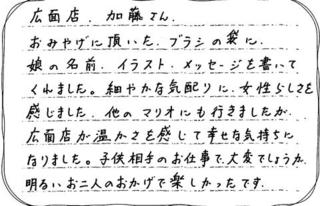 広面店、加藤さん、
おみやげに頂いた、ブラシの袋に、
娘の名前、イラスト、メッセージを書いて
くれました。細やかな気配りに、女性らしさを
感じました、他のマリオにも行きましたが、
広面店が温かさを感じて幸せな気持ちに
なりました。子供相手のお仕事で、大変でしょうが、
明るいお二人のおかげで楽しかったです。